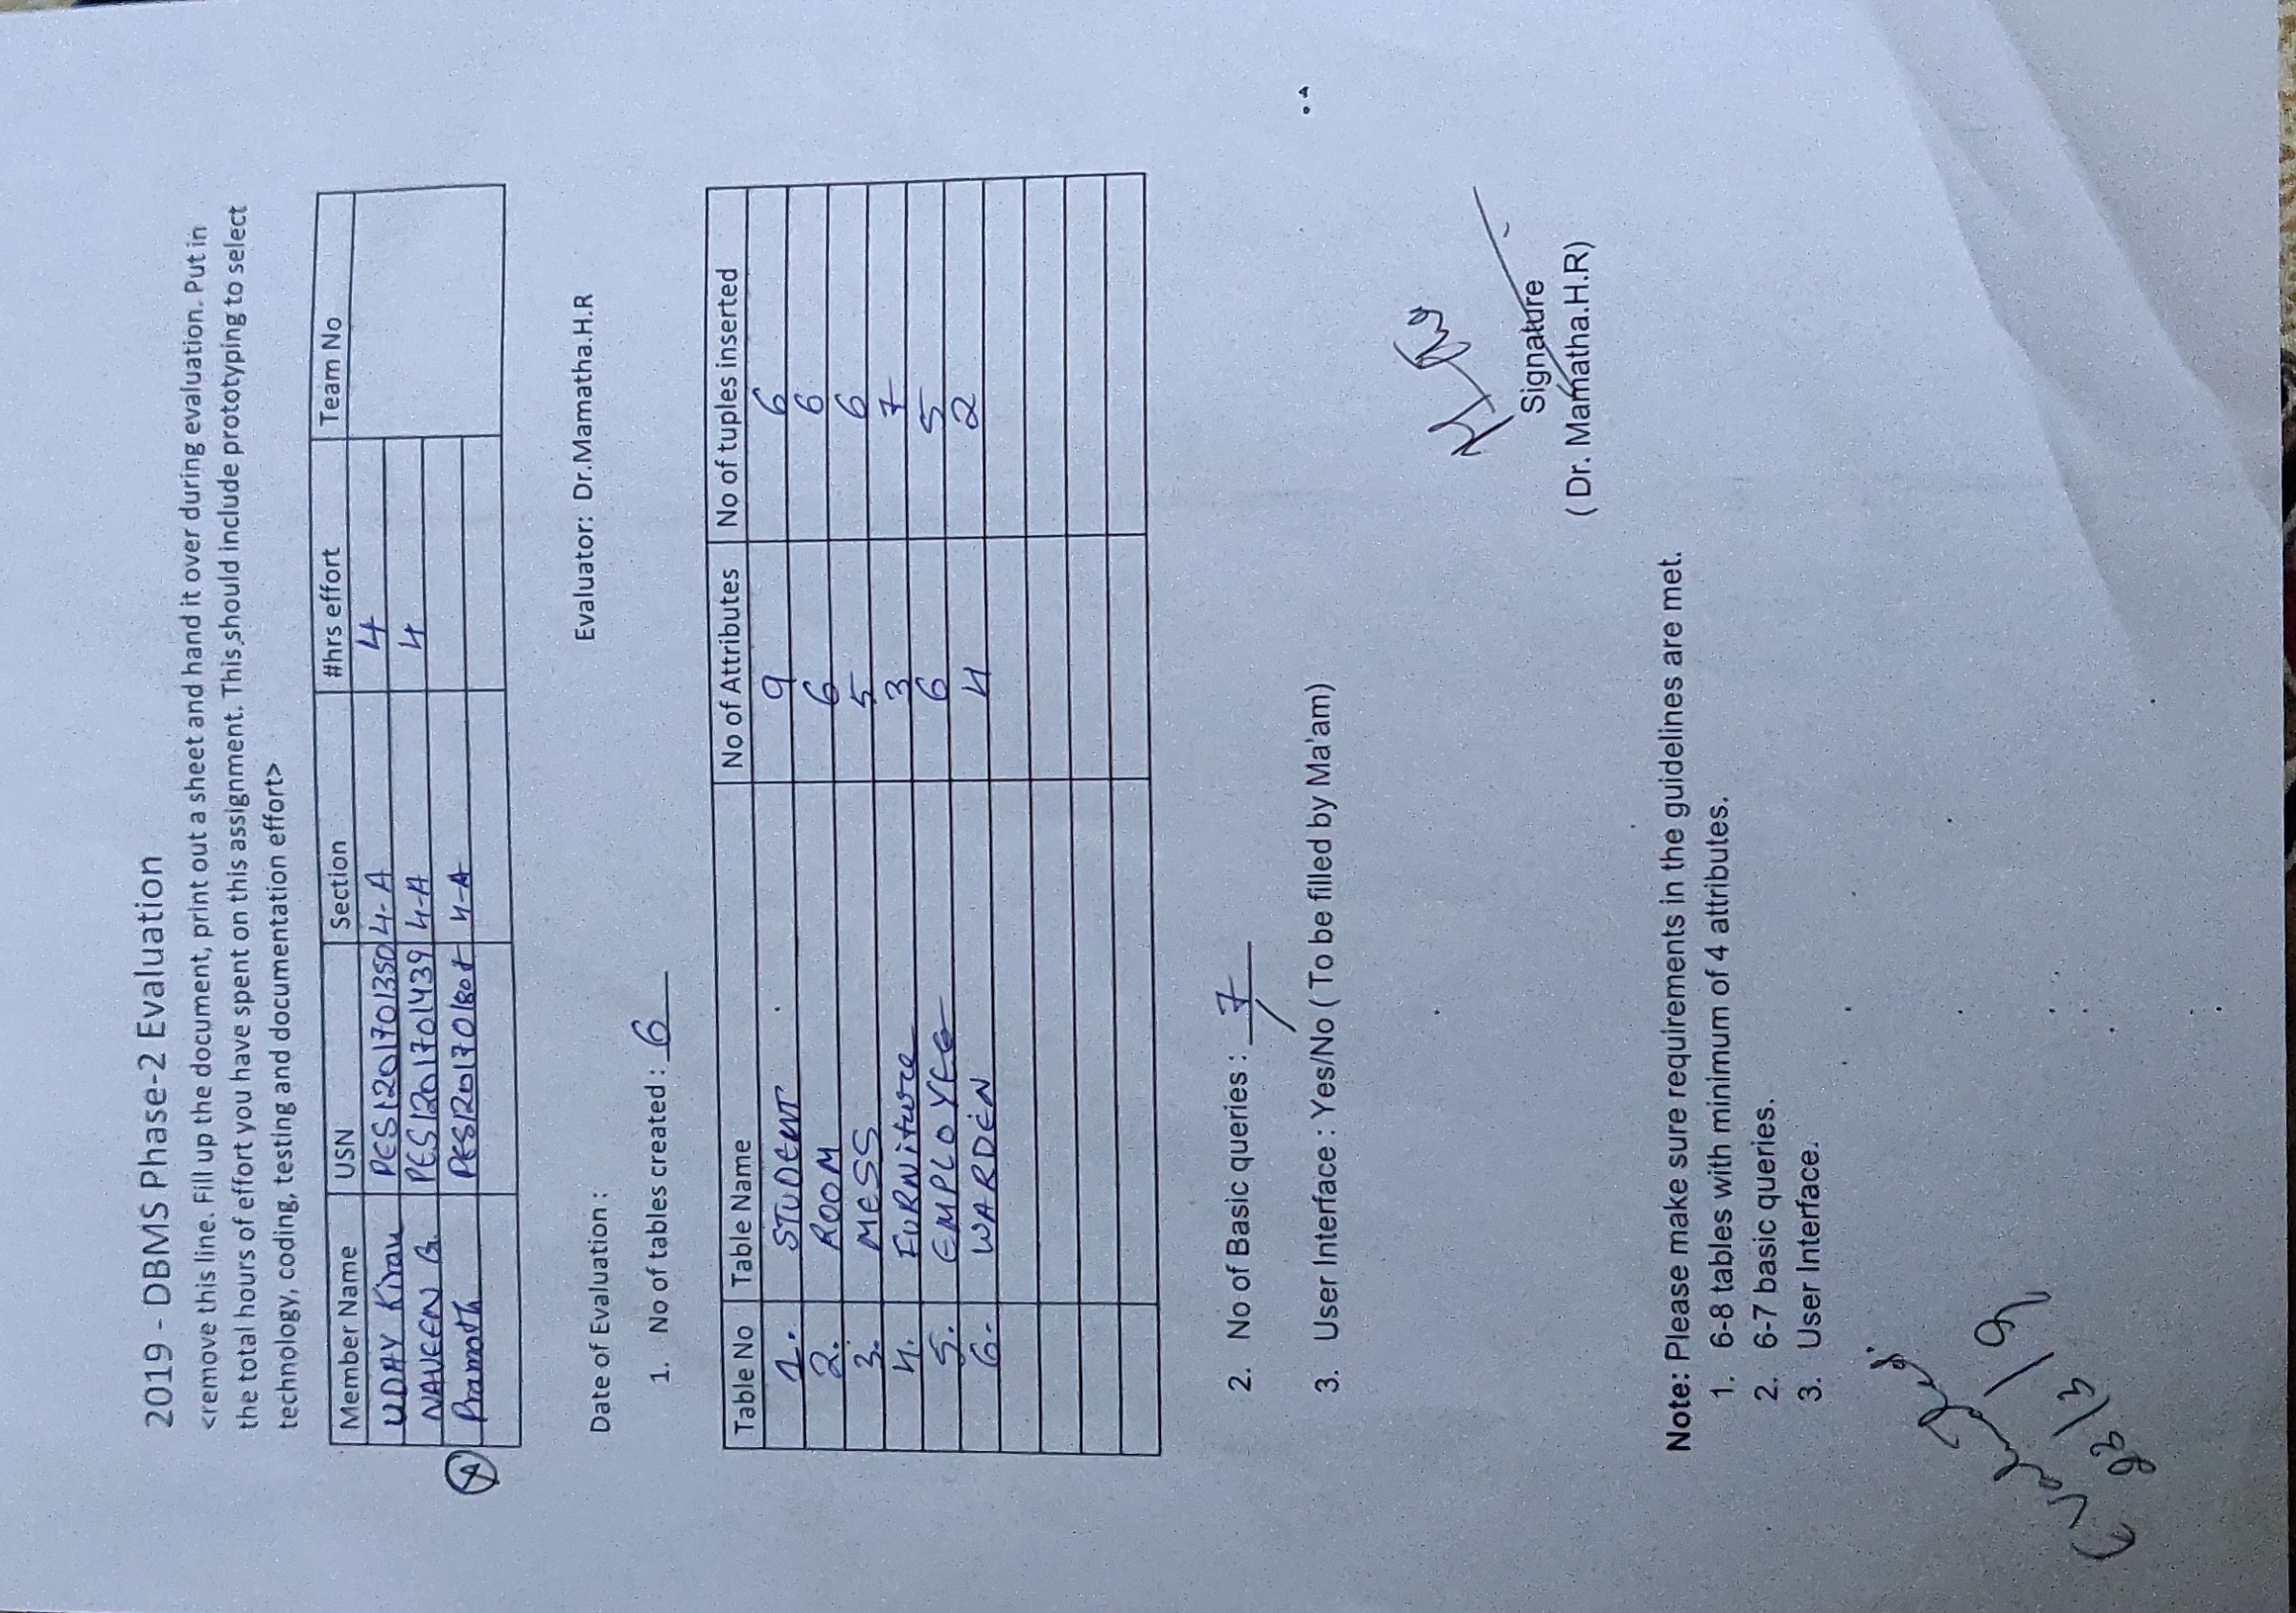 2019 - DBMS Phase-2 Evaluation
<remove this line. Fill up the document, print out a sheet and hand it over during evaluation. Put in
the total hours of effort you have spent on this assignment. This should include prototyping to select
technology, coding, testing and documentation effort>
Member Name USN Section #hrs effort Team No
UDAY Kiran PES1201701350 4-A 4
NAVEEN B. PES1201701439 4-A 4
Pramoth 4-A
Date of Evaluation : Evaluator: Dr.Mamatha.H.R
1. No of tables created : 6
Table No Table Name No of Attributes No of tuples inserted
1. STUDENT 9 6
2. ROOM 6 6
3. MESS 5 6
4. FURNiture 3 7
5. EMPLOYEE 6 5
6. WARDEN 4 2
2. No of Basic queries : 7
3. User Interface : Yes/No ( To be filled by Ma'am)
Signature
( Dr. Mamatha.H.R)
Note: Please make sure requirements in the guidelines are met.
1. 6-8 tables with minimum of 4 attributes.
2. 6-7 basic queries.
3. User Interface.